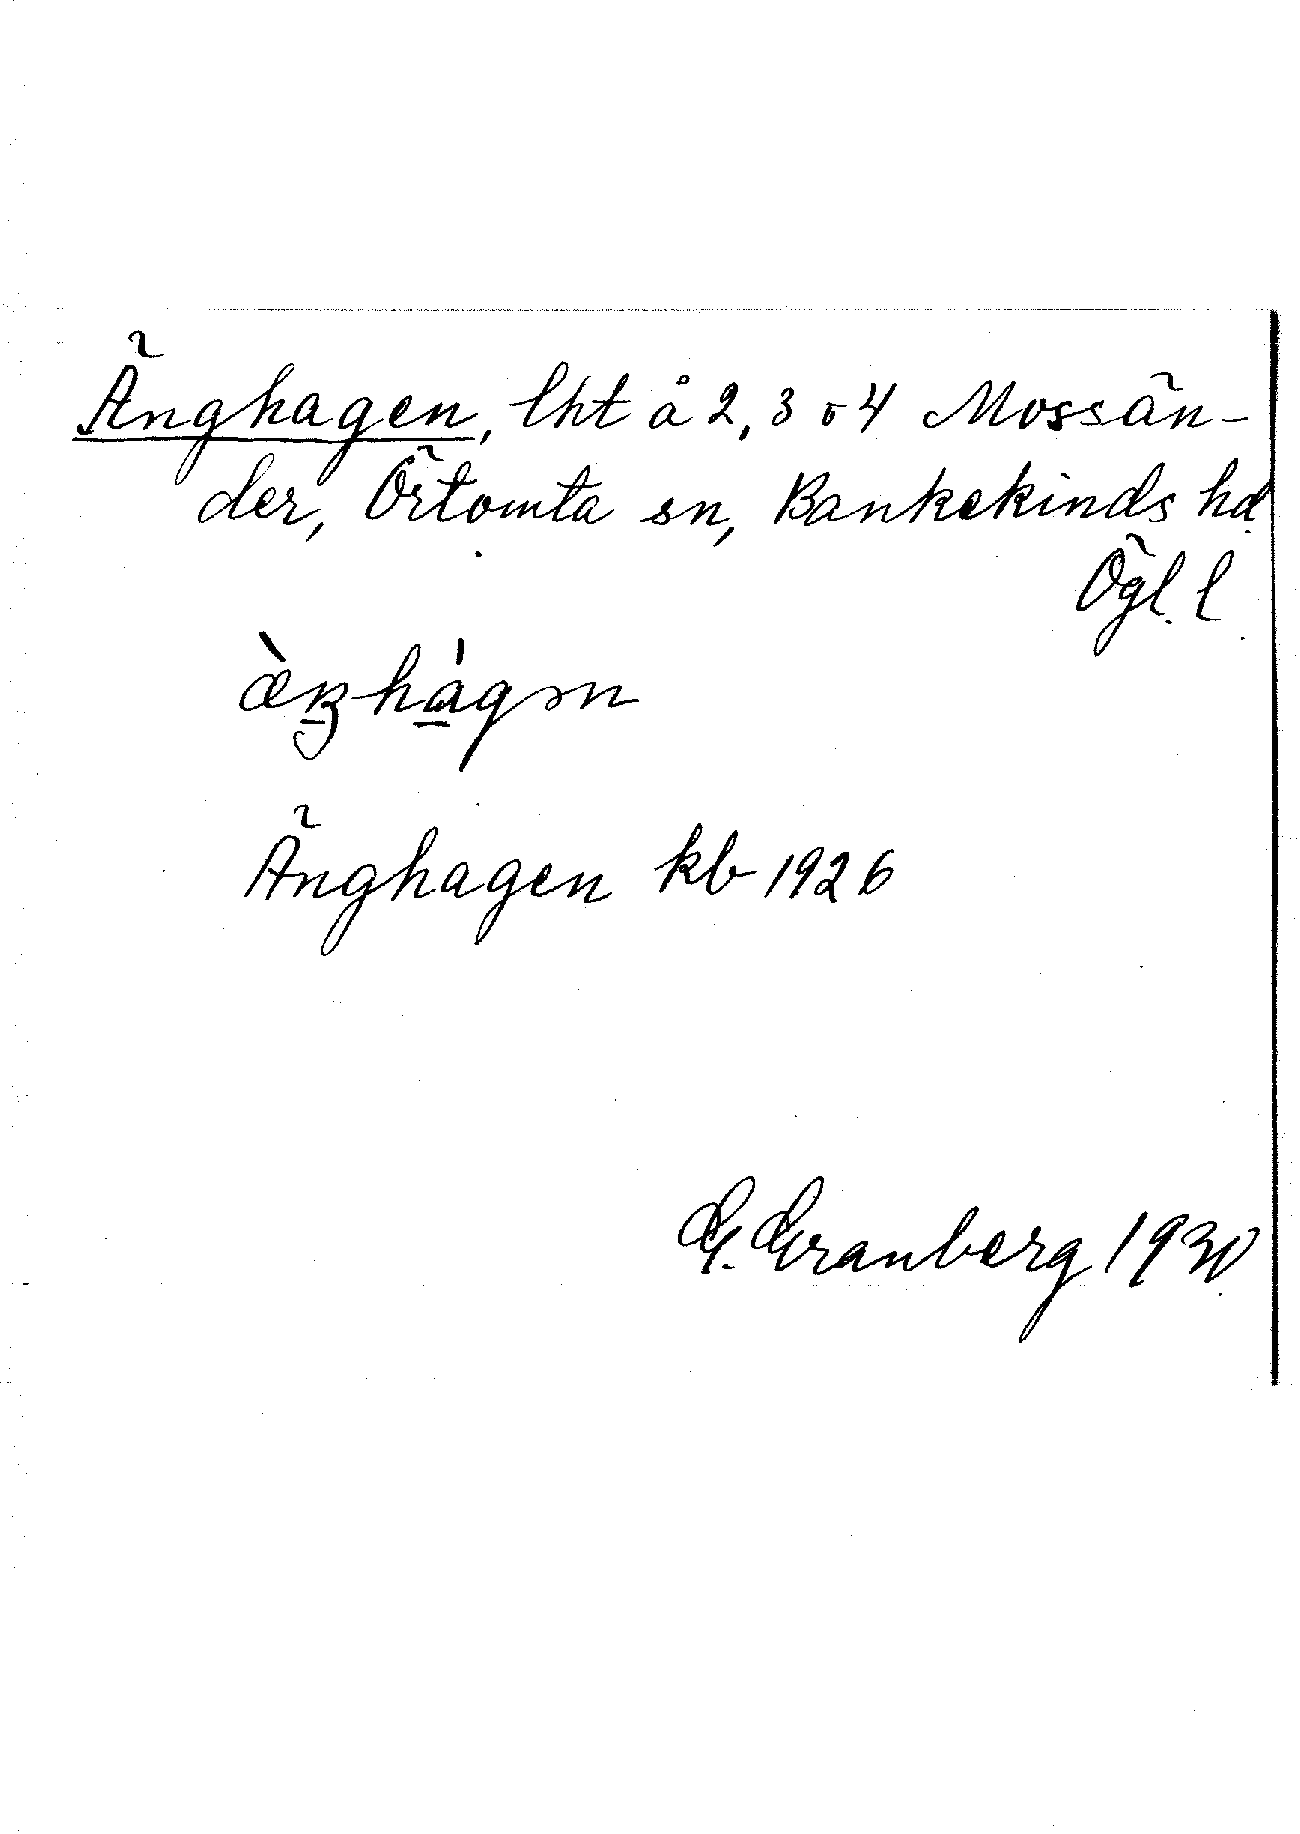 Änghagen, lht å 2, 3 o 4 Mossän-
der, Örtomta sn, Bankekinds hd
Ögl. l
Änghagen kb 1926
G. Granberg 1930